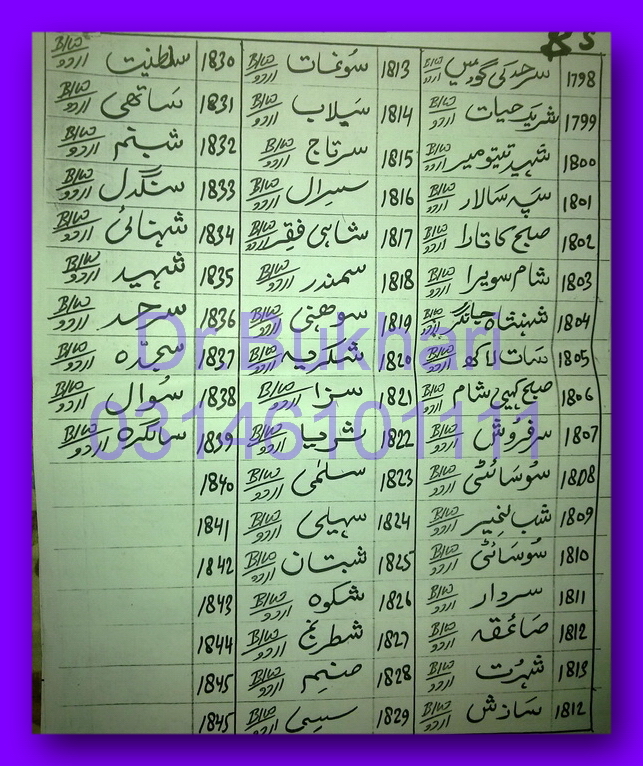 S
1798 سرحد کی گود میں B/W اردو
1799 شریک حیات B/W اردو
1800 شہید تیتو میر B/W اردو
1801 سپہ سالار B/W اردو
1802 صبح کا تارا B/W اردو
1803 شام سویرا B/W اردو
1804 شہنشاہ جہانگیر B/W اردو
1805 سات لاکھ B/W اردو
1806 صبح کہیں شام B/W اردو
1807 سرفروش B/W اردو
1808 سوسائٹی B/W اردو
1809 شب بخیر B/W اردو
1810 سوسائٹی B/W اردو
1811 سردار B/W اردو
1812 صاعقہ B/W اردو
1813 شہرت B/W اردو
1812 سازش B/W اردو
1813 سومنات B/W اردو
1814 سیلاب B/W اردو
1815 سرتاج B/W اردو
1816 سسرال B/W اردو
1817 شاہی فقیر B/W اردو
1818 سمندر B/W اردو
1819 سوہنی B/W اردو
1820 شکریہ B/W اردو
1821 سزا B/W اردو
1822 ثریا B/W اردو
1823 سلمٰی B/W اردو
1824 سہیلی B/W اردو
1825 شبستان B/W اردو
1826 شکوہ B/W اردو
1827 شطرنج B/W اردو
1828 صنم B/W اردو
1829 سسی B/W اردو
1830 سلطنت B/W اردو
1831 ساتھی B/W اردو
1832 شبنم B/W اردو
1833 سنگدل B/W اردو
1834 شہنائی B/W اردو
1835 شہید B/W اردو
1836 سرحد B/W اردو
1837 سجدہ B/W اردو
1838 سوال B/W اردو
1839 سالگرہ B/W اردو
1840
1841
1842
1843
1844
1845
1845
Dr.Bukhari
03146101111